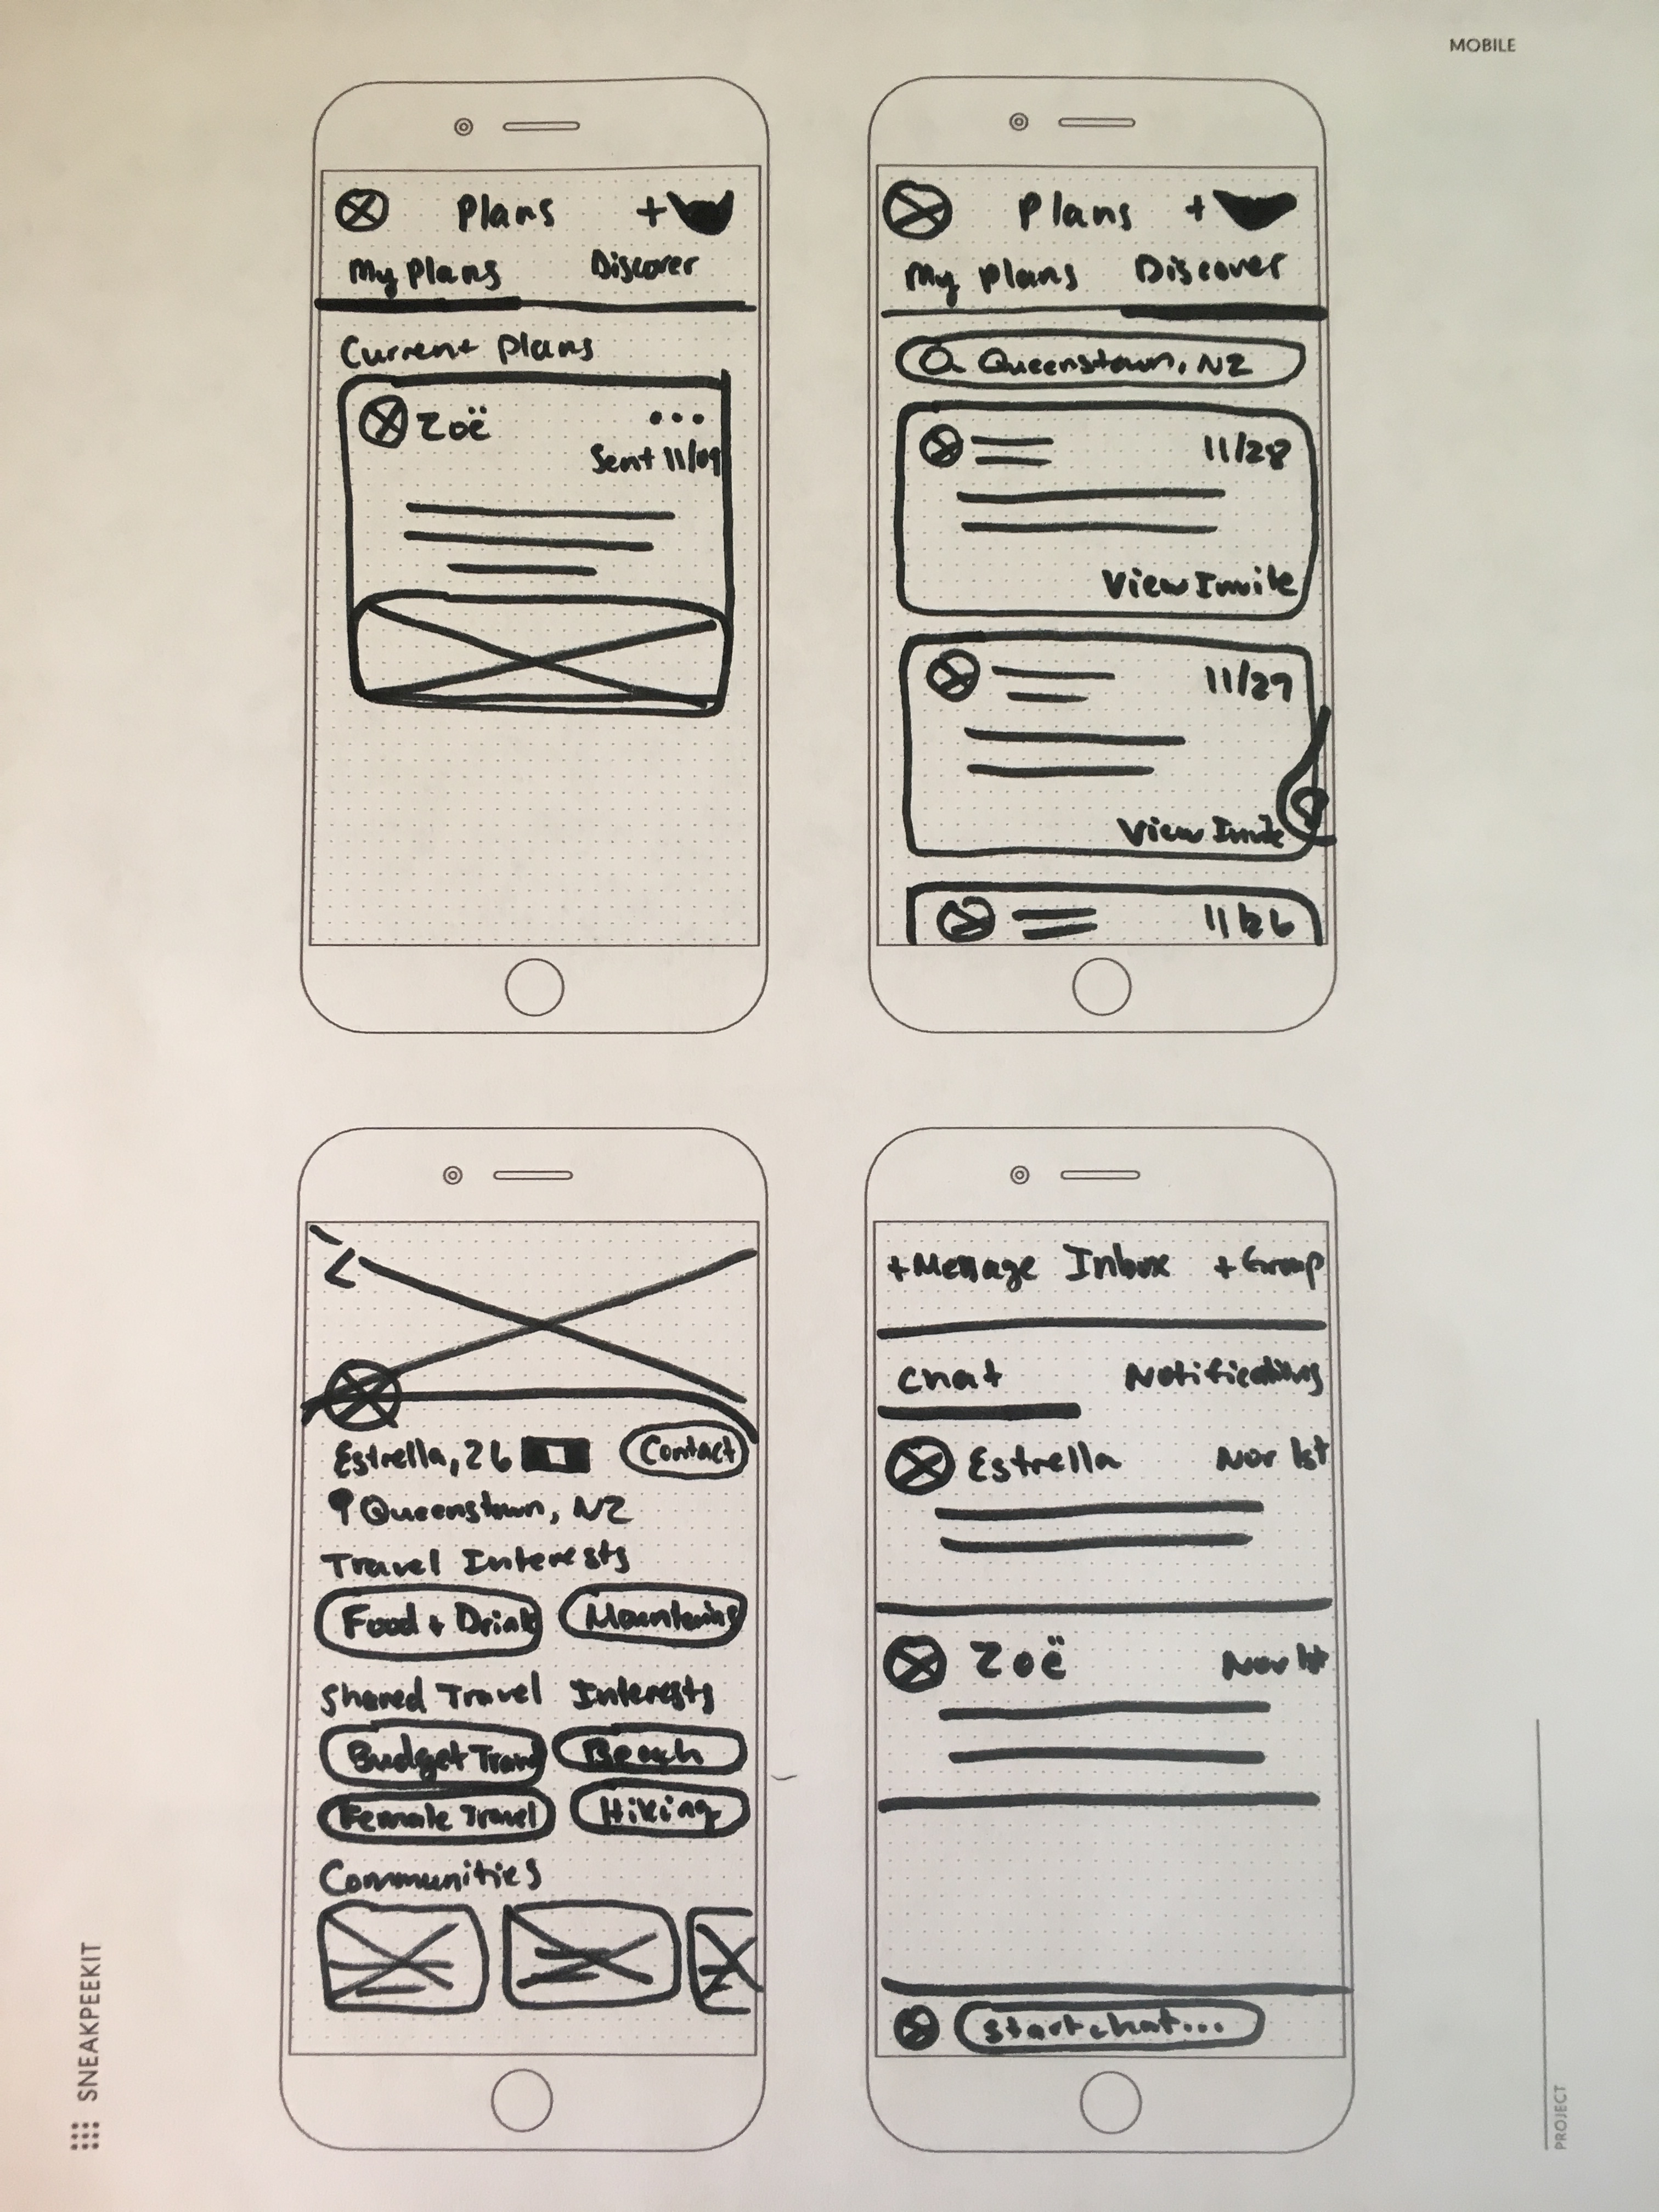 MOBILE
Plans +
My Plans Discover
Current Plans
Zoë
Sent 11/09
Plans +
My plans Discover
Queenstown, NZ
11/28
View Invite
11/27
View Invite
11/26
<
Estrella, 26 Contact
Queenstown, NZ
Travel Interests
Food + Drink Mountains
Shared Travel Interests
Budget Travel Beach
Female Travel Hiking
Communities
+Message Inbox +Group
Chat Notifications
Estrella Nov 1st
Zoë Nov 1st
Start chat...
SNEAKPEEKIT
PROJECT